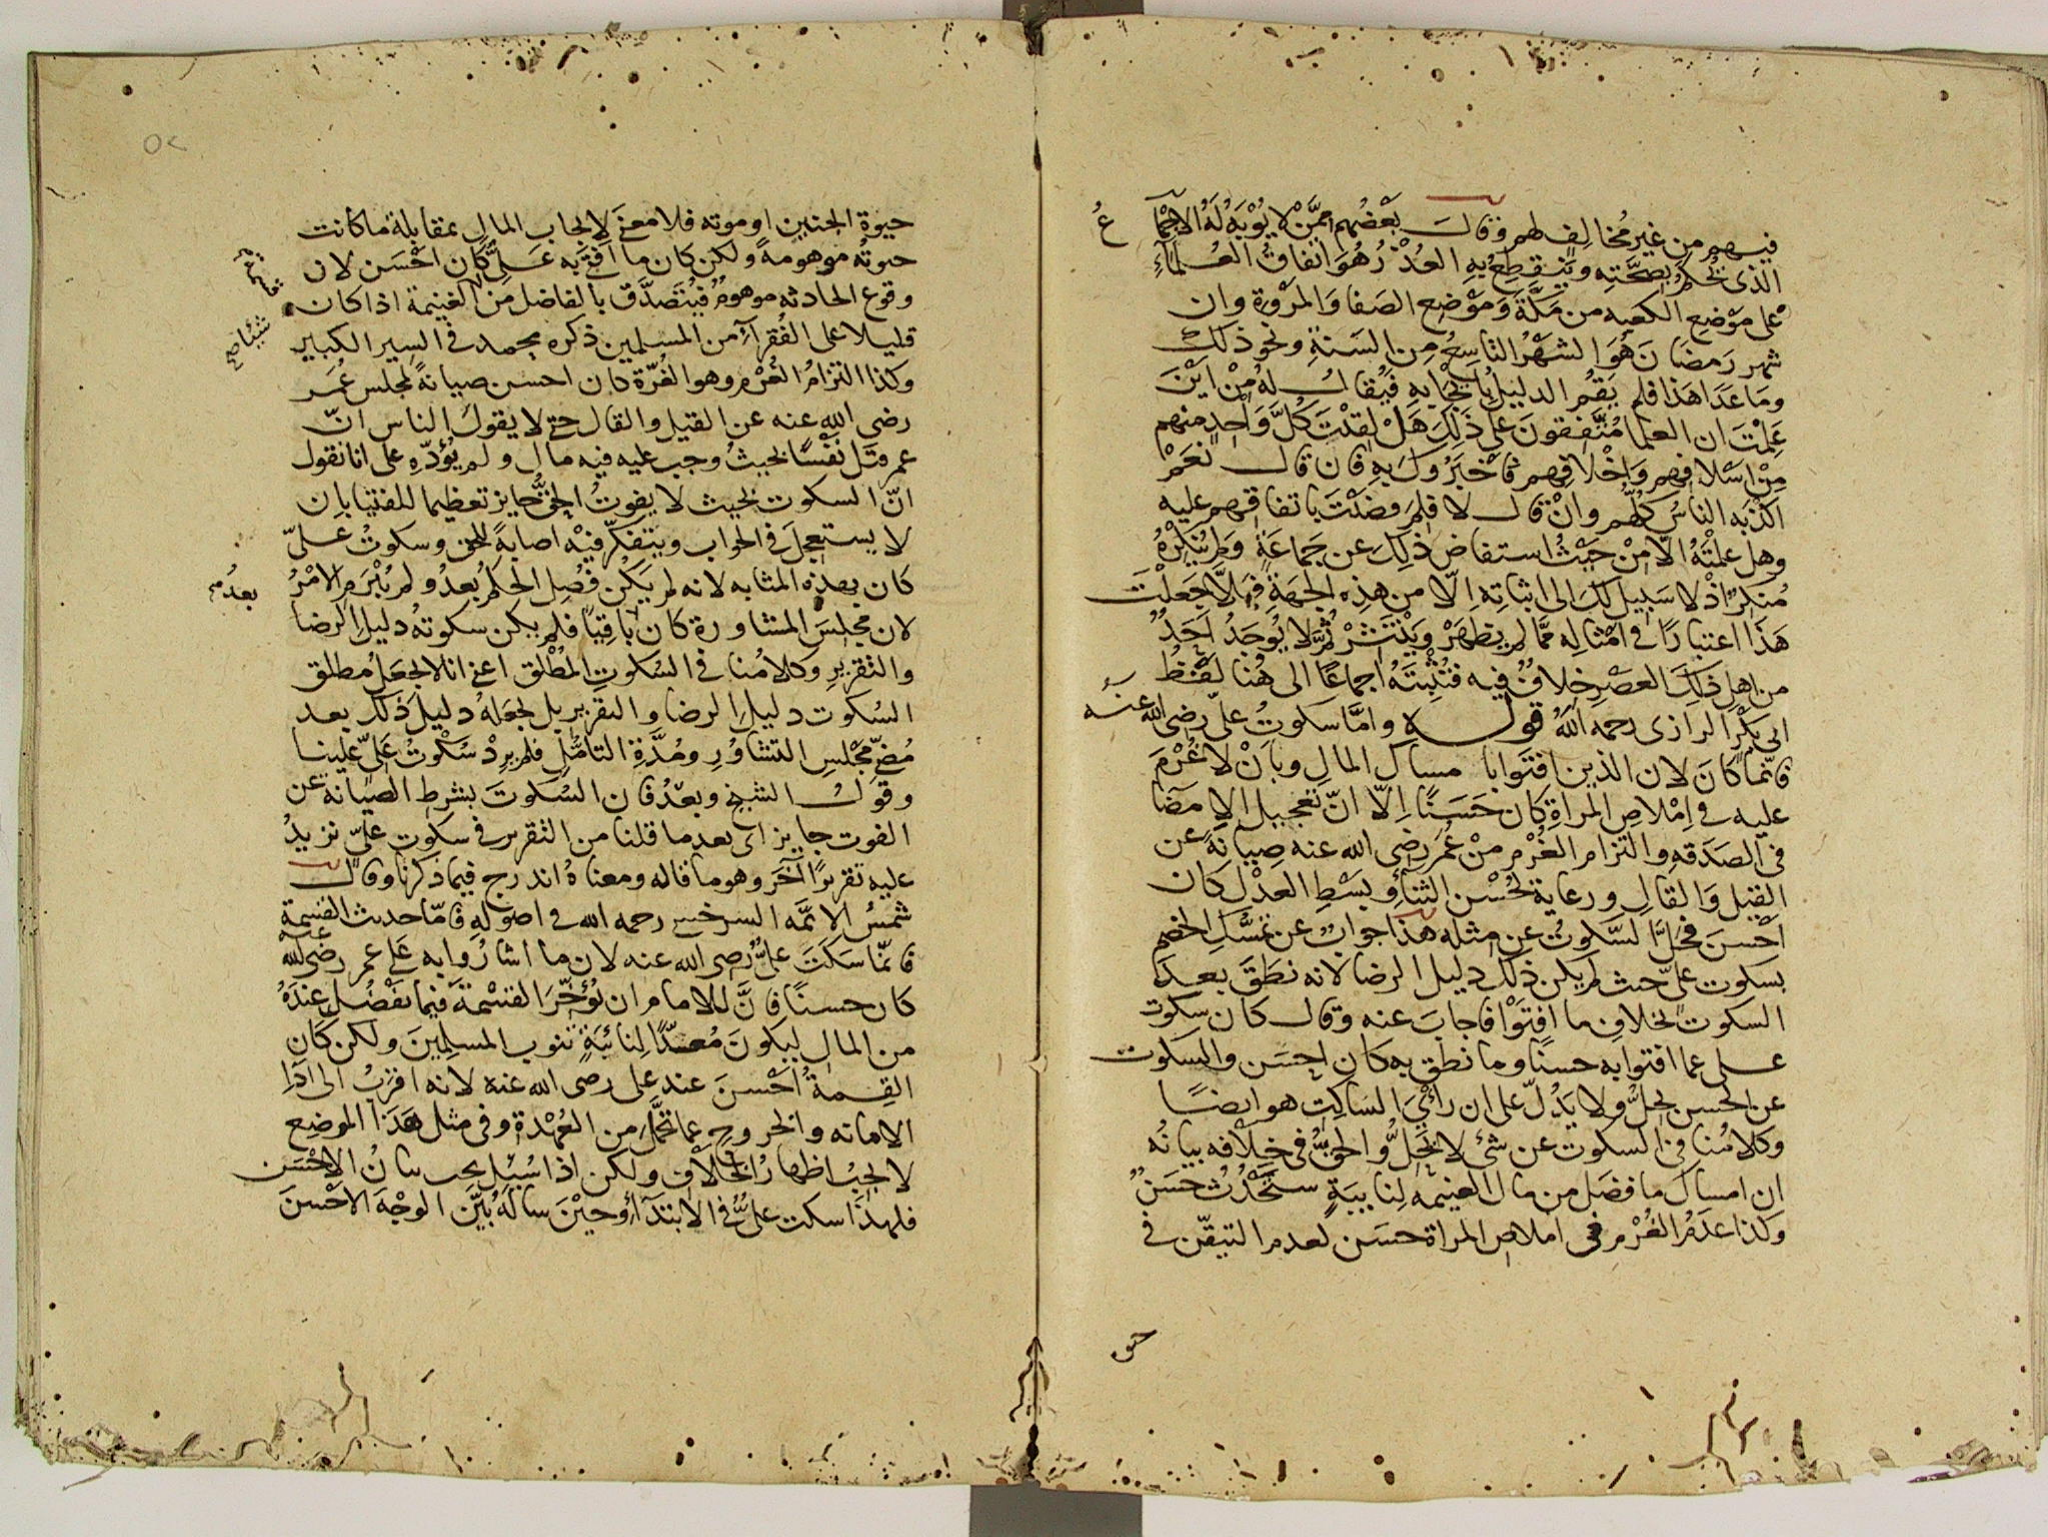 فيهم من غير مخالف لهم وقال بعضهم ممن لا يؤبه له الاجما
ع
الذى نحكم بصحته وينقطع به العذر هو اتفاق العلماء
على موضع الكعبه من مكة وموضع الصفا والمروة وان
شهر رمضان هو الشهر التاسع من السنة ونحو ذلك
وما عدا هذا فلم يقم الدليل بايجابه فيقال له من اين
علمت ان العلما متفقون على ذلك هل لقيت كل واحد منهم
من اسلافهم واخلافهم فاخبروك به فان قال نعم
اكذبه الناس كلهم وان قال لا فلم قضيت باتفاقهم عليه
وهل علمته الا من حيث استفاض ذلك عن جماعة ولم ينكره
منكر اذ لا سبيل لك الى اثباته الا من هذه الجهة فهلا جعلت
هذا اعتبارا فى امثاله مما لم يظهر وينتشر ثم لا يوجد احد
من اهل ذلك العصر خلاف فيه فتثبته اجماعا الى هنا لفظ
ابى بكر الرازى رحمه الله قوله واما سكوت على رضى الله عنه
فانما كان لان الذين افتوا با مساك المال وبان لا غرم
عليه فى املاص المراة كان حسنا الا ان تعجيل الامضا
فى الصدقه والتزام الغرم من عمر رضى الله عنه صيانة عن
القيل والقال ورعاية لحسن الثنا وبسط العدل كان
احسن فحل السكوت عن مثله هذا جواب عن تمسك الخصم
بسكوت على حيث لم يكن ذلك دليل الرضا لانه نطق بعد
السكوت بخلاف ما افتوا فاجاب عنه وقال كان سكوت
على عما افتوا به حسنا وما نطق به كان احسن والسكوت
عن الحسن يحل ولا يدل على ان راى الساكت هو ايضا
وكلامنا فى السكوت عن شئ لا يحل والحق فى خلافه بيانه
ان امساك ما فضل من مال الغنيمه لنايبة ستحدث حسن
وكذا عدم الغرم فى املاص المراة حسن لعدم التيقن فى
حيوة الجنين او موته فلا معنى لايجاب المال بمقابلة ما كانت
حيوته موهومة ولكن كان ما افتى به على كان احسن لان
وقوع الحادثه موهوم فيتصدق بالفاضل من الغنيمة اذا كان
قليلا على الفقراء من المسلمين ذكره محمد فى السير الكبير
وكذا التزام الغرم وهو الغرة كان احسن صيانة لمجلس عمر
رضى الله عنه عن القيل والقال حتى لا يقول الناس ان
عمر قتل نفسا بحيث وجب عليه فيه مال ولم يؤده على انا نقول
ان السكوت بحيث لا يفوت الحق جايز تعظيما للفتيا بان
لا يستعجل فى الجواب ويتفكر فيه اصابة للحق وسكوت على
كان بهذه المثابه لانه لم يكن فصل الحكم بعد ولم يبرم الامر
بعد
لان مجلس المشاورة كان باقيا فلم يكن سكوته دليل الرضا
والتقرير وكلامنا فى السكوت المطلق اعنى انا لا نجعل مطلق
السكوت دليل الرضا والتقرير بل نجعله دليل ذلك بعد
مضى مجلس التشاور ومدة التامل فلم يرد سكوت على علينا
وقول الشيخ وبعد فان السكوت بشرط الصيانة عن
الفوت جايز اى بعد ما قلنا من التقرير فى سكوت على نزيد
عليه تقريرا آخر وهو ما قاله ومعناه اندرج فيما ذكرنا وقال
شمس الائمه السرخسى رحمه الله فى اصوله فاما حديث القسمة
فانما سكت على رضى الله عنه لان ما اشاروا به على عمر رضى الله عنه
كان حسنا فان للامام ان يؤخر القسمة فيما يفضل عنده
من المال ليكون معدا لنائبة تنوب المسلمين ولكن كان
القسمة احسن عند على رضى الله عنه لانه اقرب الى ادا
الامانه والخروج عما تحمل من العهدة وفى مثل هذا الموضع
لا يجب اظهار الخلاف ولكن اذا سئل يجب بيان الاحسن
فلهذا سكت على فى الابتداء وحين ساله بين الوجه الاحسن